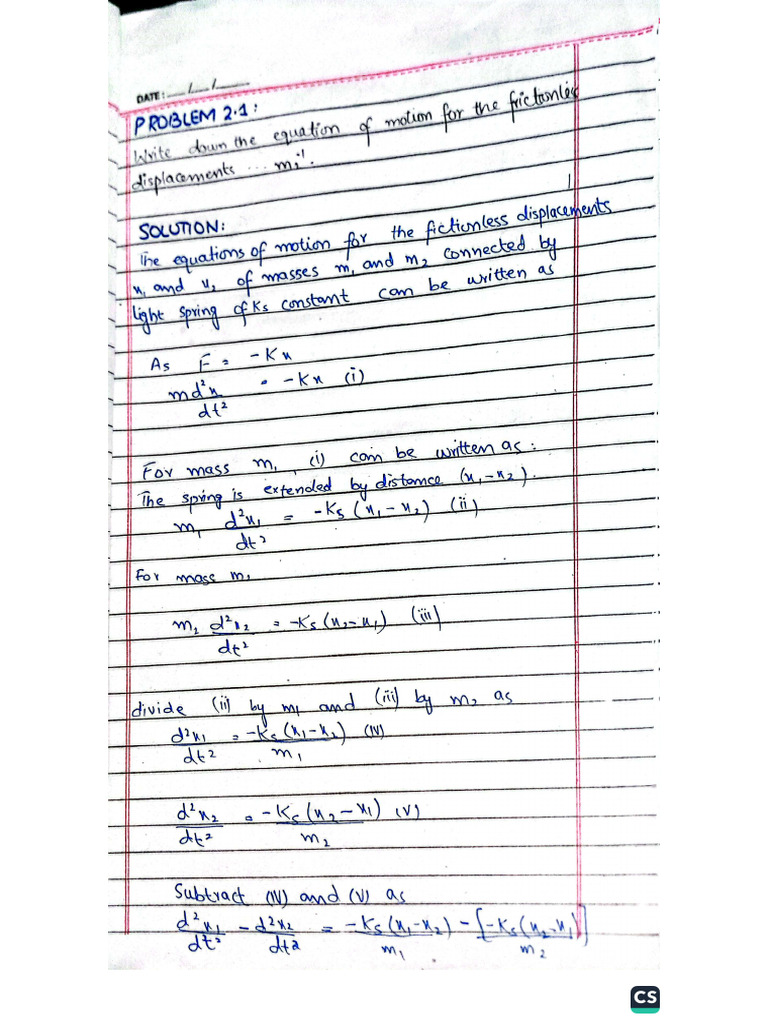 DATE: __/__/____
PROBLEM 2.1:
Write down the equation of motion for the frictionless
displacements ... m₂'.
SOLUTION:
The equations of motion for the fictionless displacements
x₁ and x₂ of masses m₁ and m₂ connected by
light spring of Ks constant can be written as
As F = -Kx
md²x/dt² = -Kx (i)
For mass m₁, (i) can be written as:
The spring is extended by distance (x₁-x₂).
m₁ d²x₁/dt² = -Ks(x₁-x₂) (ii)
For mass m₂
m₂ d²x₂/dt² = -Ks(x₂-x₁) (iii)
divide (ii) by m₁ and (iii) by m₂ as
d²x₁/dt² = -Ks(x₁-x₂)/m₁ (IV)
d²x₂/dt² = -Ks(x₂-x₁)/m₂ (V)
Subtract (IV) and (V) as
d²x₁/dt² - d²x₂/dt² = -Ks(x₁-x₂)/m₁ - [-Ks(x₂-x₁)/m₂]
CS